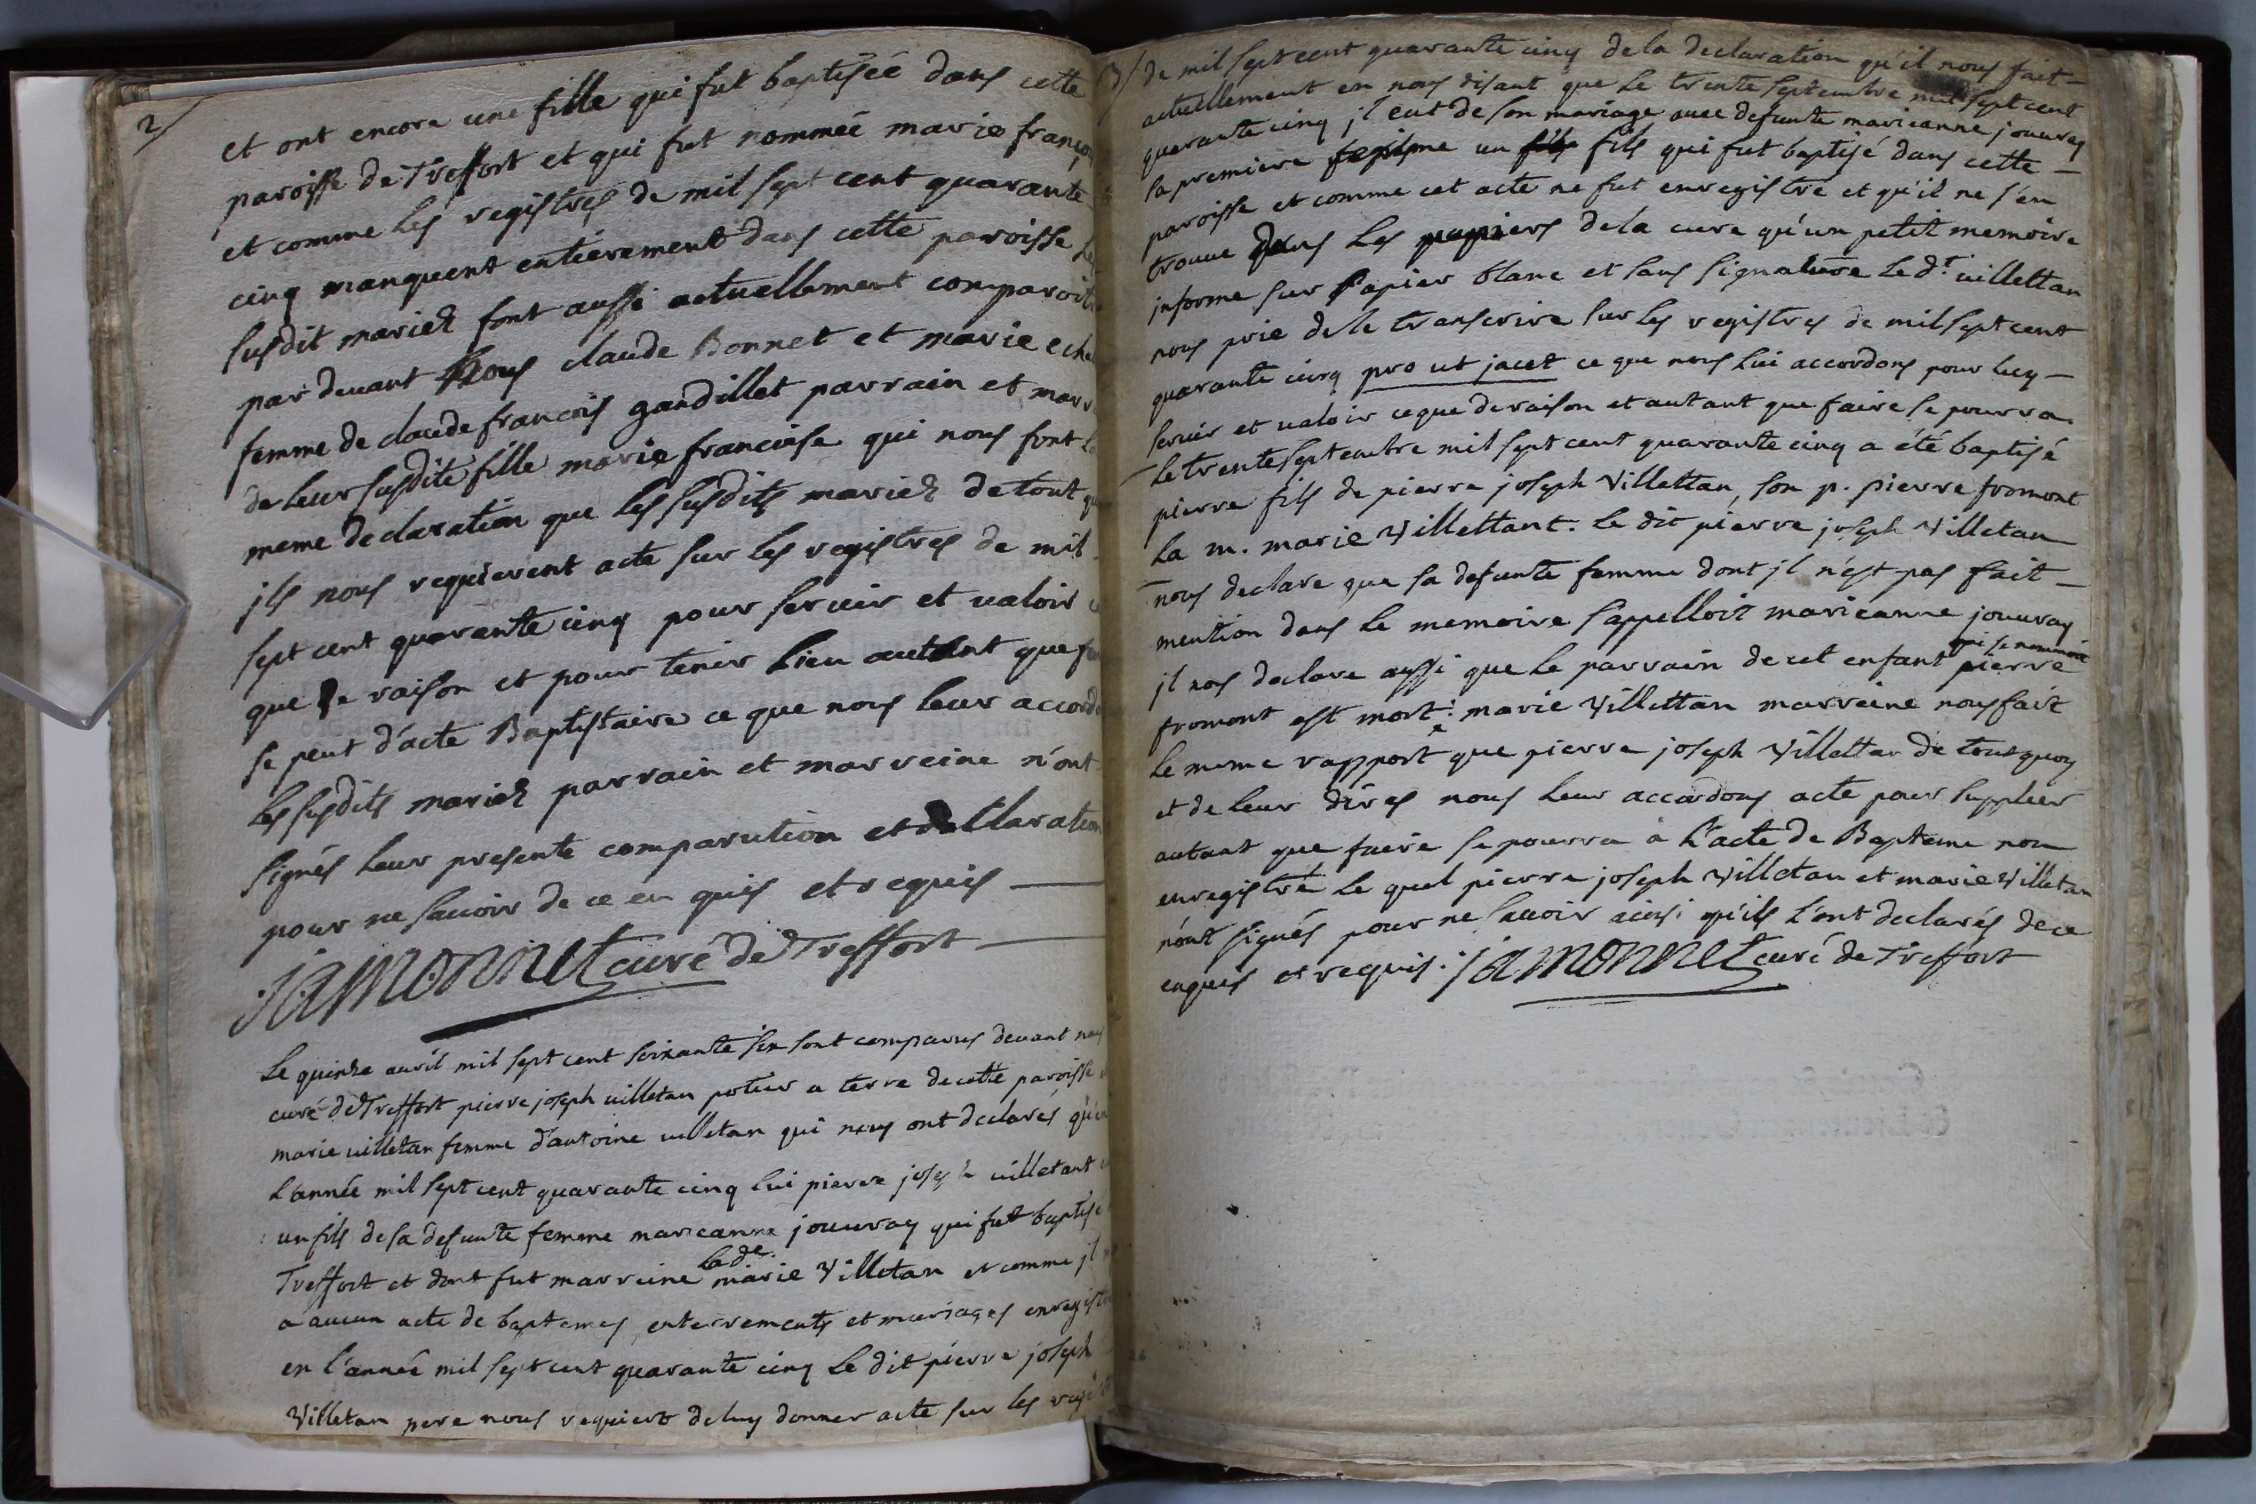 2/
et ont encore une fille qui fut baptisée dans cette
paroisse de Treffort et qui fut nommée marie françoi
et comme les registres de mil sept cent quarante
cinq manquent entièrement dans cette paroisse les
susdit mariez font aussi actuellement comparoitre
par devant Nous claude Bonnet et marie
femme de claude françois gandillet parrain et marr
de leur susdite fille marie francoise qui nous font la
meme declaration que les susdits mariez de tout quoy
ils nous requierent acte sur les registres de mil
sept cent quarante cinq pour servir et valoir ce
que de raison et pour tenir lieu autant que faire
se peut d'acte Baptistaire ce que nous leur accordons
les susdits mariez parrain et marreine n'ont
signés leur presente comparution et declaration
pour ne savoir de ce en quis et requis —
jamonnet curé de Treffort —
Le quinze avril mil sept cent soixante six sont comparus devant nous
curé de Treffort pierre joseph villetan potier a terre de cette paroisse
marie villetan femme d'antoine villetan qui nous ont declarés qu'en
L'année mil sept cent quarante cinq lui pierre joseph villetant
un fils de sa defunte femme marieanne jouvray qui fut baptisé
Treffort et dont fut marreine lade marie Villetan et comme jl
a aucun acte de baptemes enterrements et mariages enregistr
en l'année mil sept cent quarante cinq le dit pierre joseph
Villetan pere nous requiert deluy donner acte sur les regi
3/ de mil sept cent quarante cinq de la declaration qu'il nous fait —
actuellement en nous disant que le trente septembre mil sept cent
quarante cinq jl eut de son mariage avec defunte marieanne jouvray
sa premiere femme un fils fils qui fut baptisé dans cette —
paroisse et comme cet acte ne fut enregistré et qu'il ne s'en
trouve dans les papiers de la cure qu'un petit memoire
informe sur papier blanc et sans signature le dt villettan
nous prie de le transcrire sur les registres de mil sept cent
quarante cinq pro ut jacet ce que nous lui accordons pour luy —
servir et valoir ce que de raison et autant que faire se pourra.
Le trente septembre mil sept cent quarante cinq a été baptisé
pierre fils de pierre joseph Villettan, son p. pierre fromont
la m. marie Villettant. le dit pierre joseph Villetan
nous declare que sa defunte femme dont jl n'est pas fait —
mention dans le memoire s'appelloit marieanne jouvray
jl nos declare aussi que le parrain de cet enfant qui se nommoit pierre
fromont est mort: marie Villettan marreine nous fait
le meme rapport que pierre joseph Villettan de tout quoy
et de leur dires nous leur accordons acte pour suppléer
autant que faire se pourra à l'acte de Bapteme non
enregistré le quel pierre joseph Villetan et marie Villetan
n'ont signés pour ne savoir ainsi qu'ils l'ont declarés de ce
enquis et requis. jamonnet curé de Treffort